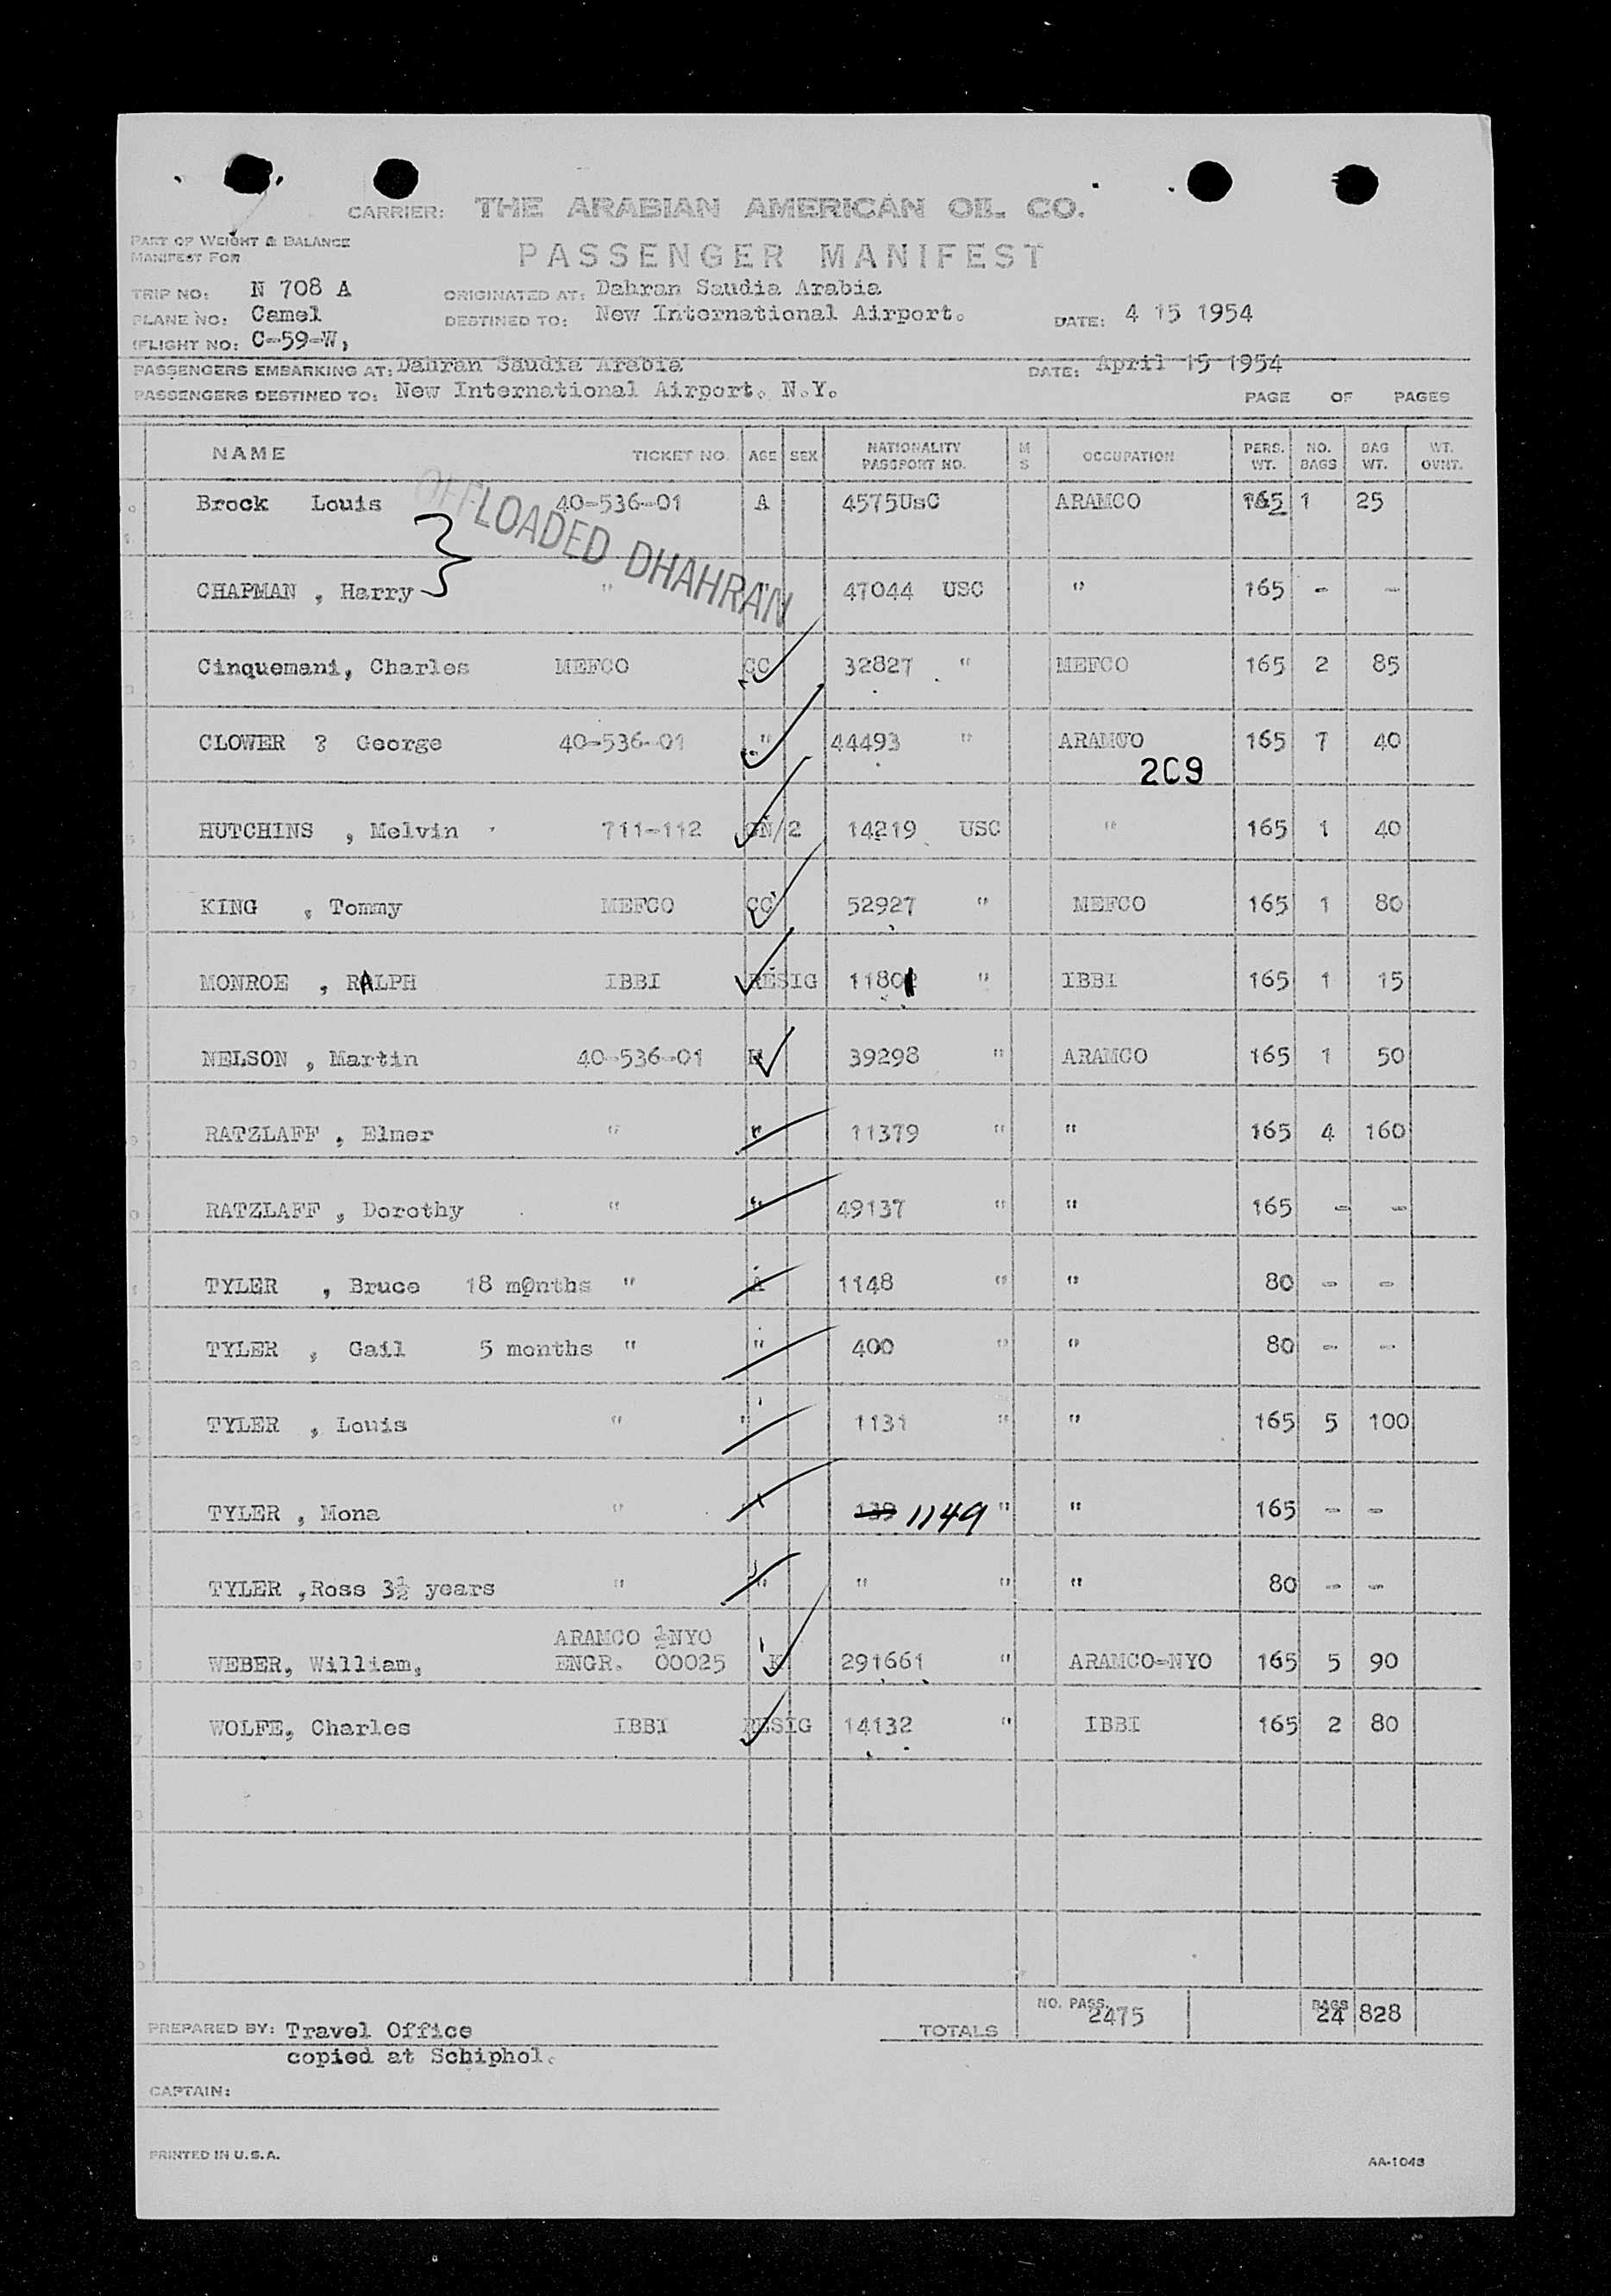 CARRIER: THE ARABIAN AMERICAN OIL CO.
PART OF WEIGHT & BALANCE
MANIFEST FOR
PASSENGER MANIFEST
TRIP NO: N 708 A ORIGINATED AT: Dahran Saudia Arabia
PLANE NO: Camel DESTINED TO: New International Airport. DATE: 4 15 1954
FLIGHT NO: C-59-W,
PASSENGERS EMBARKING AT: Dahran Saudia Arabia DATE: April 15 1954
PASSENGERS DESTINED TO: New International Airport. N.Y. PAGE OF PAGES
NAME TICKET NO. AGE SEX NATIONALITY PASSPORT NO. M S OCCUPATION PERS. WT. NO. BAGS BAG WT. WT. OVNT.
Brock Louis 40-536-01 A 4575UsC ARAMCO 165 1 25
OFFLOADED DHAHRAN
CHAPMAN , Harry " " 47044 USC " 165 - -
Cinquemani, Charles MEFCO CC 32827 " MEFCO 165 2 85
CLOWER ? George 40-536-01 " 44493 " ARAMCO 165 7 40
2C9
HUTCHINS , Melvin 711-112 GN/2 14219 USC " 165 1 40
KING , Tommy MEFCO CC 52927 " MEFCO 165 1 80
MONROE , RALPH IBBI RESIG 11801 " IBBI 165 1 15
NELSON , Martin 40-536-01 39298 " ARAMCO 165 1 50
RATZLAFF , Elmer " " 11379 " " 165 4 160
RATZLAFF , Dorothy " " 49137 " " 165 - -
TYLER , Bruce 18 m0nths " A 1148 " " 80 - -
TYLER , Gail 5 months " " 400 " " 80 - -
TYLER , Louis " " 1131 " " 165 5 100
TYLER , Mona " 139 1149 " " 165 - -
TYLER ,Ross 3½ years " " " " " 80 - -
ARAMCO ½NYO
WEBER, William, ENGR. 00025 K 291661 " ARAMCO-NYO 165 5 90
WOLFE, Charles IBBI RESIG 14132 " IBBI 165 2 80
TOTALS NO. PASS. 2475 BAGS 24 828
PREPARED BY: Travel Office
copied at Schiphol.
CAPTAIN:
PRINTED IN U.S.A. AA-1048